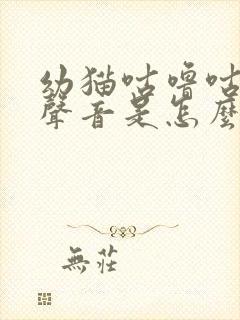 幼猫咕噜咕
聲音是怎麼
無莊